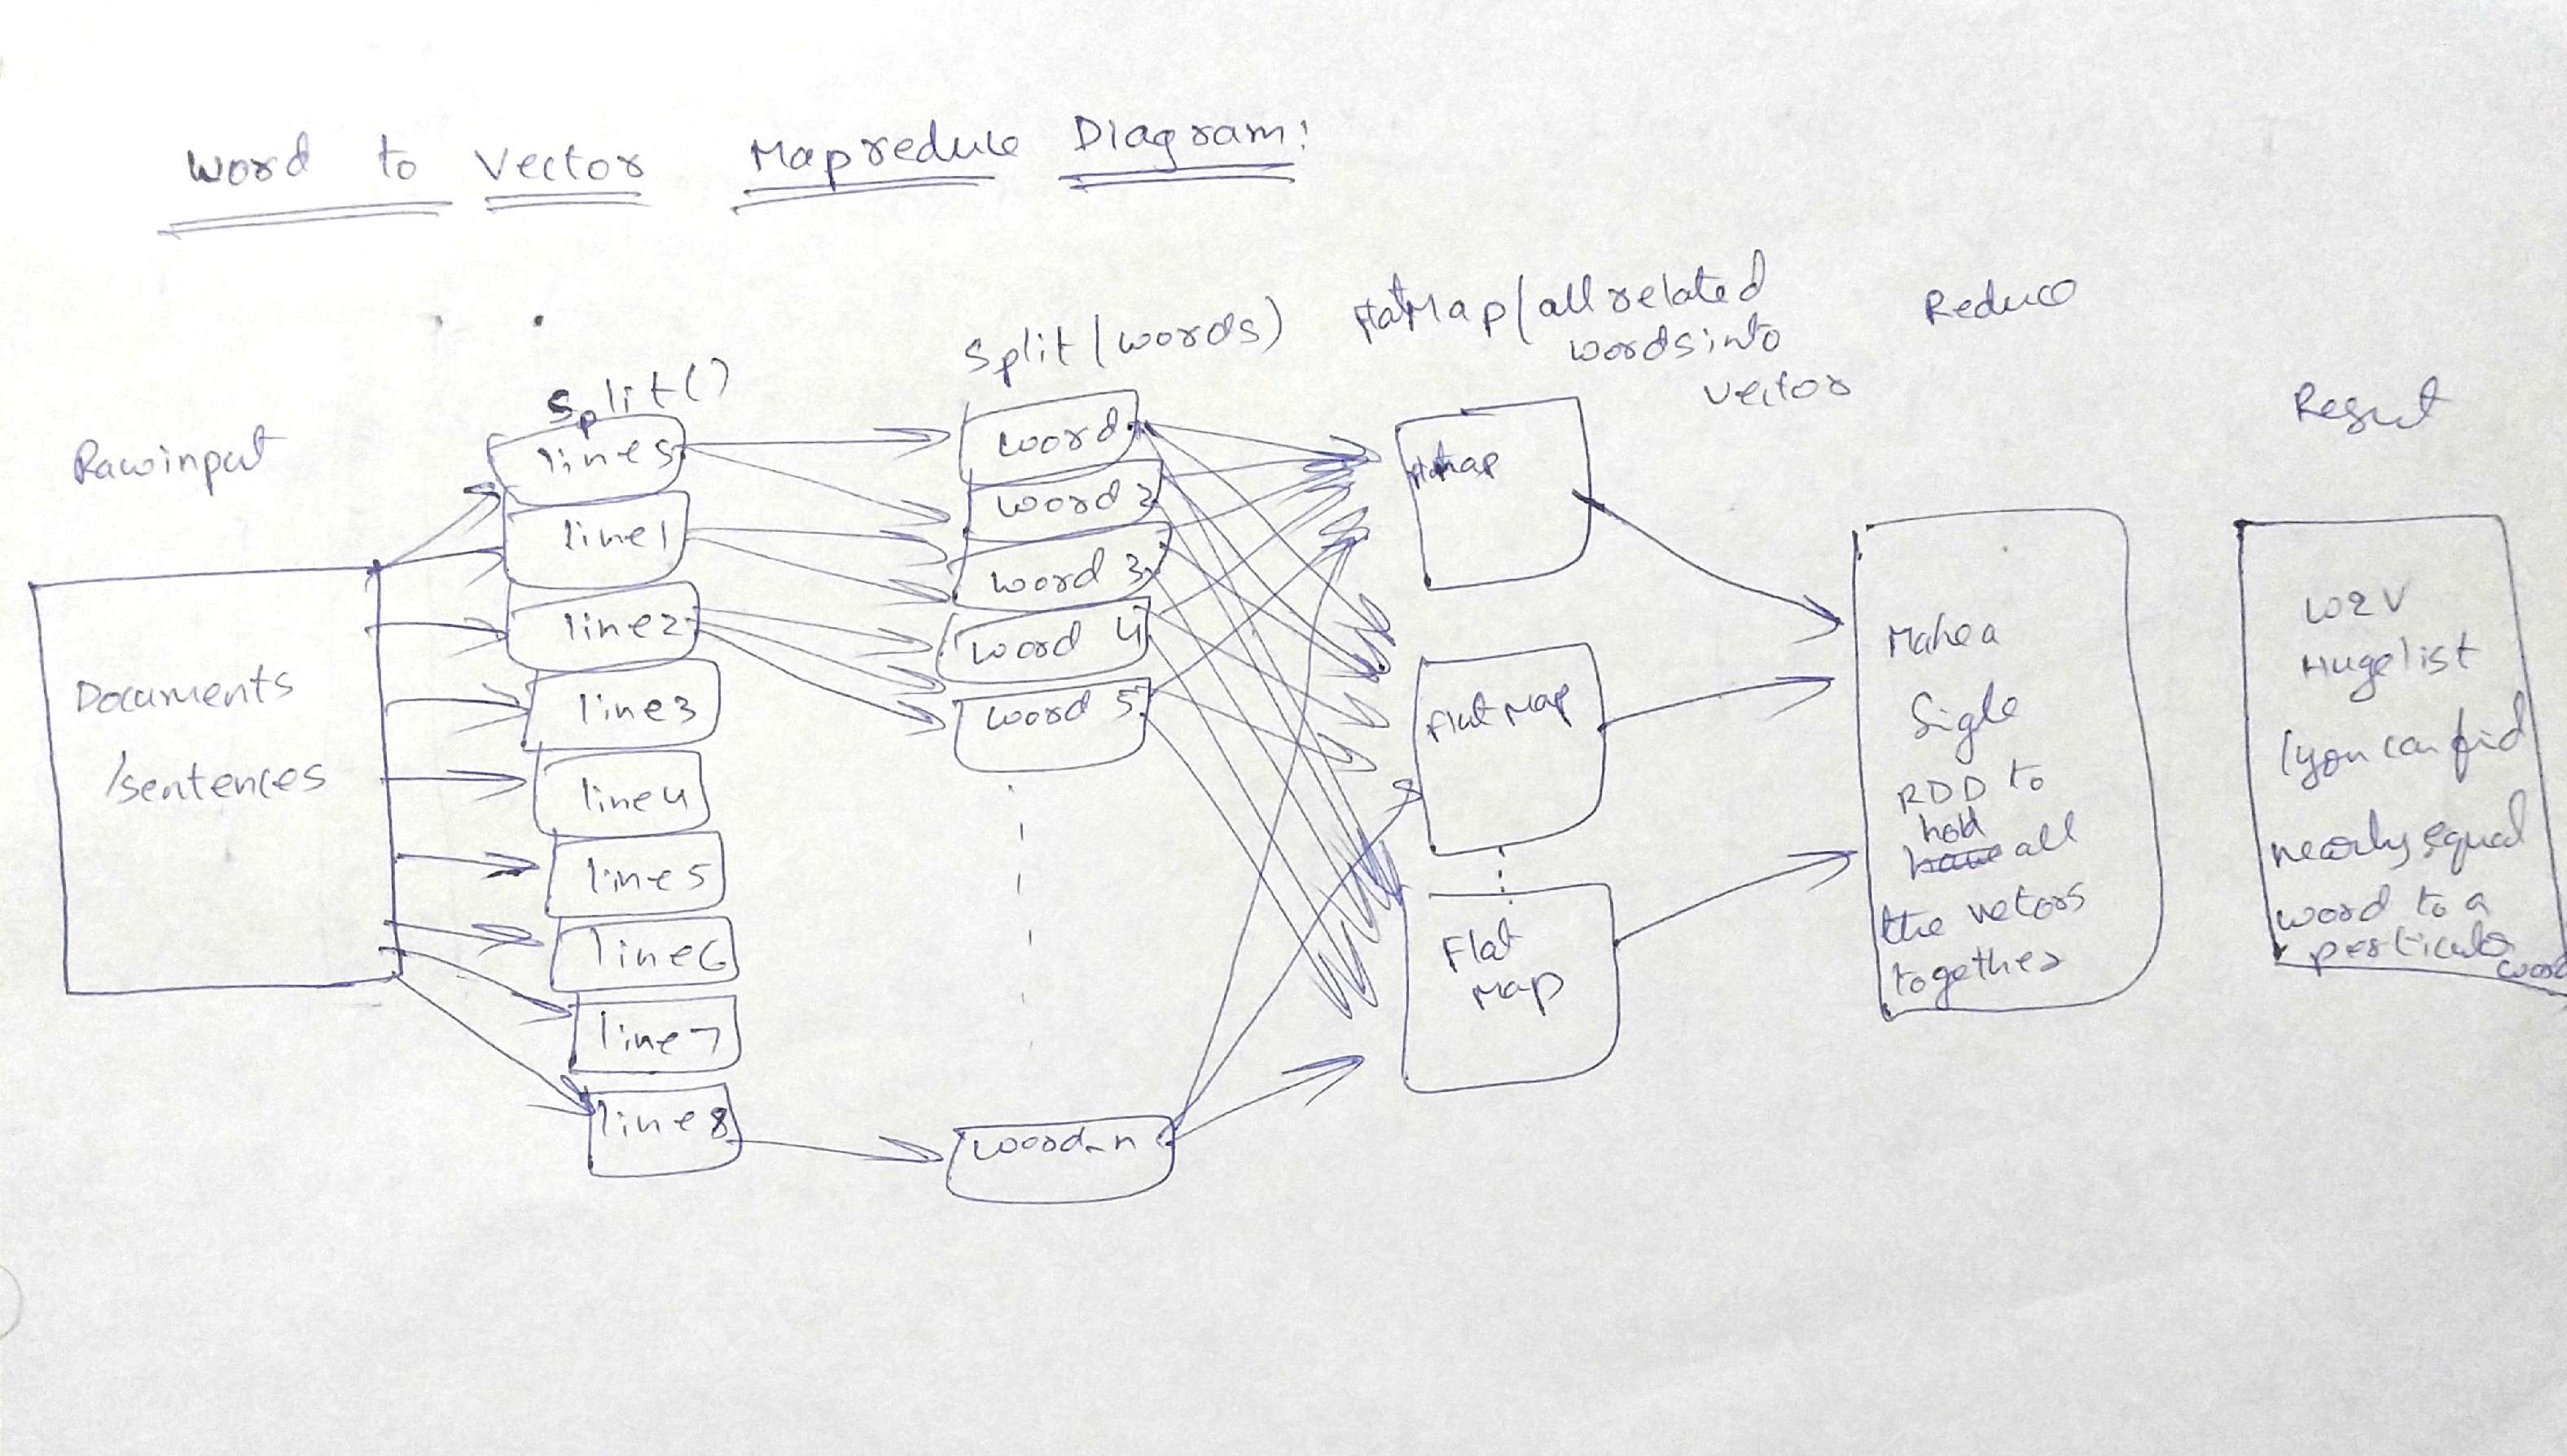 Word to Vector Mapreduce Diagram:
Rawinput
Documents
/sentences
Split()
lines
line1
line2
line3
line4
line5
line6
line7
line8
Split(words)
word
word 2
word 3
word 4
word 5
word_n
FlatMap(all related
words into
vector
flatmap
Flat Map
Flat
Map
Reduce
Make a
Sigle
RDD to
hold
have all
the vetors
together
Result
W2V
Huge list
(you can fid
nearly equal
word to a
perticular
word